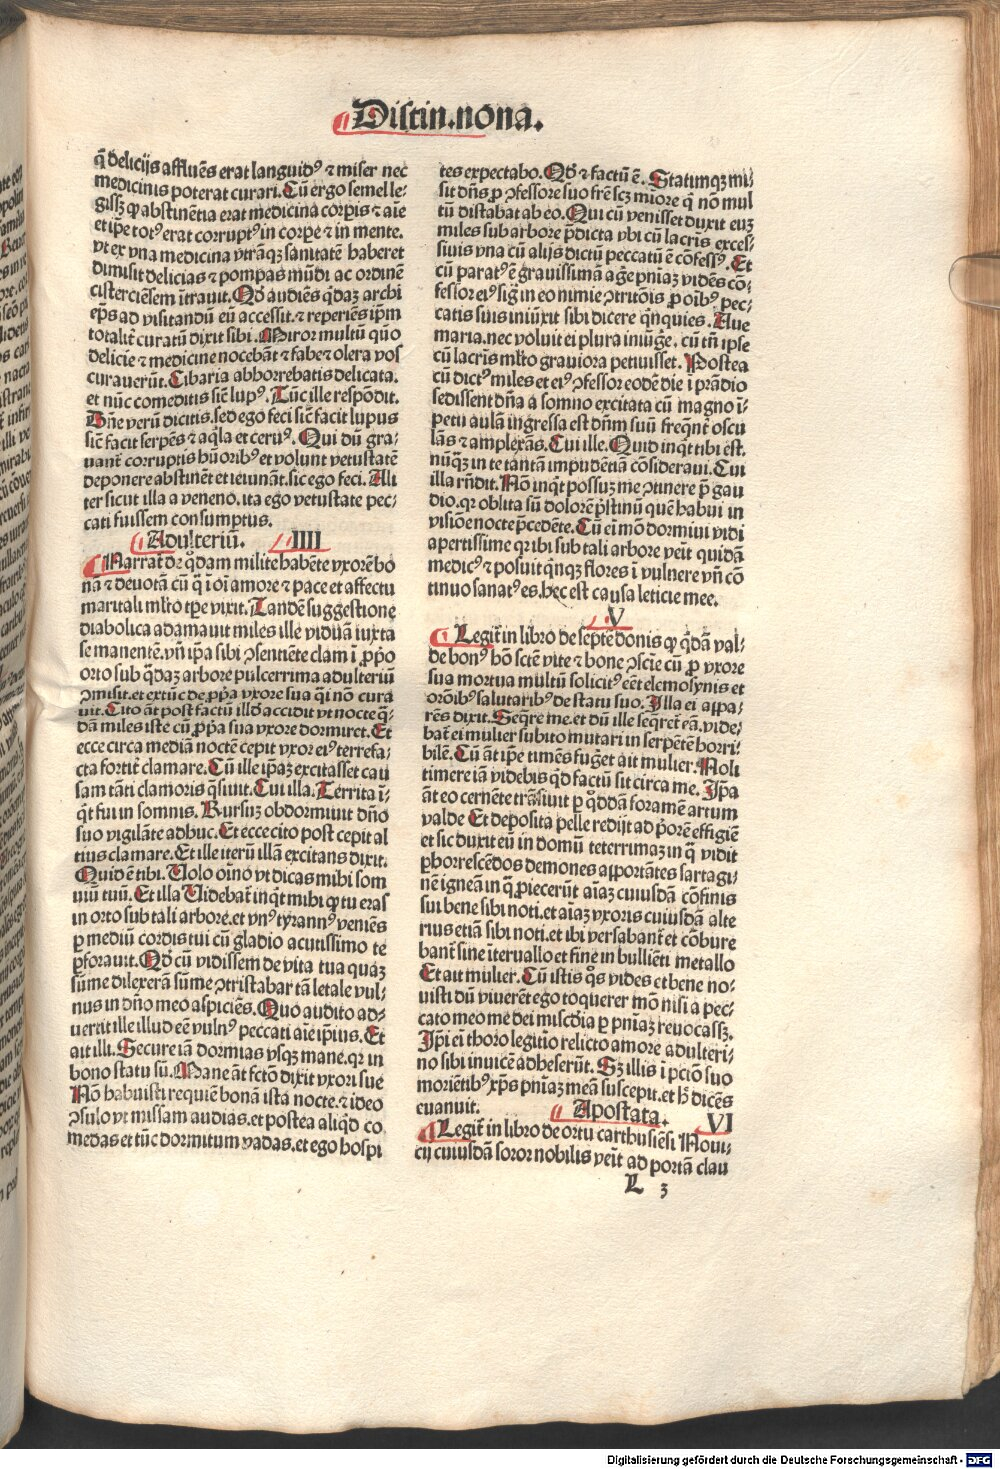 Distin.nona.
q̄ delicijs affluēs erat languidꝰ ⁊ miser nec
medicinis poterat curari. Cū ergo semel le-
gissꝫ ꝙ abstinētia erat medicina corꝑis ⁊ aīe
et ip̄e totꝰ erat corruptꝰ in corꝑe ⁊ in mente.
vt ex vna medicina vtrāqꝫ sanitatē haberet
dimisit delicias ⁊ pompas mūdi ac ordinē
cisterciēsem ītrauit. Qd̄ audiēs qͥdaꝫ archi
ep̄s ad visitandū eū accessit. ⁊ reperiēs ip̄m
totalit̄ curatū dixit sibi. Miror multū quō
delicie ⁊ medicine nocebāt ⁊ fabe ⁊ olera vos
curauerūt. Cibaria abhorrebatis delicata.
et nūc comeditis sic̄ lupꝰ. Tūc ille respōdit.
Dn̄e verū dicitis. sed ego feci sic̄ facit lupus
sic̄ facit serpēs ⁊ aq̄la et ceruꝰ. Qui dū gra-
uant̄ corruptis hūoribꝰ et volunt vetustatē
deponere abstinēt et ieiunāt. sic ego feci. Ali
ter sicut illa a veneno. ita ego vetustate pec-
cati fuissem consumptus.
Adulteriū. IIII
Narrat̄ de qͦdam milite habēte vxorē bo
nā ⁊ deuotā cū qͣ ī oī amore ⁊ pace et affectu
maritali ml̄to tꝑe vixit. Tandē suggestione
diabolica adamauit miles ille viduā iuxta
se manentē. vn̄ ip̄a sibi ꝯsentiēte clam ī ꝓpo
orto sub qͣdaꝫ arbore pulcerrima adulteriū
ꝯmisit. et extūc de ꝓpa vxore sua qͣi nō cura
uit. Cito āt post factū illd̄ accidit vt nocte q̄-
dā miles iste cū ꝓpa sua vxore dormiret. Et
ecce circa mediā noctē cepit vxor eiꝰ terrefa-
cta fortit̄ clamare. Cū ille ip̄aꝫ excitasset cau
sam tāti clamoris q̄siuit. Cui illa. Territa ī-
qͥt fui in somnis. Rursuꝫ obdormiuit dn̄o
suo vigilāte adhuc. Et ecce cito post cepit al
tius clamare. Et ille iterū illā excitans dixit.
Quid ē tibi. Volo oīno vt dicas mihi som
niū tuū. Et illa Videbat̄ inqͥt mihi ꝙ tu eras
in orto sub tali arbore. et vnꝰ tyrannꝰ veniēs
ꝑ mediū cordis tui cū gladio acutissimo te
ꝑforauit. Qd̄ cū vidissem de vita tua quaꝫ
sūme dilexerā sūme ꝯtristabar tā letale vul-
nus in dn̄o meo aspiciēs. Quo audito ad-
uertit ille illud eē vulnꝰ peccati aīe ipsius. Et
ait illi. Secure iā dormias vsqꝫ mane. qꝛ in
bono statu sū. Mane āt fctō dixit vxori sue
Nō habuisti requiē bonā ista nocte. ⁊ ideo
ꝯsulo vt missam audias. et postea aliqͥd co
medas et tūc dormitum vadas. et ego hospi
tes expectabo. Qd̄ ⁊ factū ē. Statimqꝫ mi-
sit dn̄s ꝓ ꝯfessore suo frē scꝫ mīore q̄ nō mul
tū distabat ab eo. Qui cū venisset duxit euꝫ
miles sub arbore p̄dicta vbi cū lacrīs exces-
siuis vna cū alijs dictū peccatū ē cōfessꝰ. Et
cū paratꝰ ē grauissimā aḡe pn̄iaꝫ vidēs cō-
fessor eiꝰ sīḡ in eo nimie ꝯtritōis ꝓ oībꝰ pec-
catis suis iniūxit sibi dicere qͥnquies. Aue
maria. nec voluit ei plura iniūḡe. cū tn̄ ipse
cū lacrīs ml̄to grauiora petiuisset. Postea
cū dictꝰ miles et eiꝰ ꝯfessor eodē die ī prādio
sedissent dn̄a a somno excitata cū magno ī-
petu aulā ingressa est dn̄m suū freqn̄t oscu
lās ⁊ amplexās. Cui ille. Quid inqͥt tibi est.
nūqͣꝫ in te tantā impudētiā cōsideraui. Cui
illa rn̄dit. Nō inqͥt possuꝫ me ꝯtinere p̄ gau
dio. qꝛ oblita sū dolorē pristinū quē habui in
visiōe nocte p̄cedēte. Cū ei mō dormiui vidi
apertissime qꝛ ibi sub tali arbore veīt quidā
medicꝰ ⁊ posuit qͥnqꝫ flores ī vulnere vn̄ cō
tinuo sanatꝰ es. hec est causa leticie mee.
V
Legit̄ in libro de septē donis ꝙ qͥdā val-
de bonꝰ hō scīe vite ⁊ bone ꝯscīe cū ꝓ vxore
sua mortua multū solicitꝰ eēt elemosynis et
orōibꝰ salutaribꝰ de statu suo. Illa ei appa-
rēs dixit. Seqͣre me. et dū ille seqͣret̄ eā. vide-
bat̄ ei mulier subito mutari in serpētē horri-
bilē. Cū āt ip̄e timēs fuḡet ait mulier. Noli
timere iā videbis qͥd factū sit circa me. Ip̄a
āt eo cernēte trāsiuit ꝑ qͦddā foramē artum
valde Et deposita pelle redijt ad pͥorē effigiē
et sic duxit eū in domū teterrimaꝫ in qͣ vidit
ꝑhorrescēdos demones apportātes sartagi-
nē igneā in qͣ ꝓiecerūt aīaꝫ cuiusdā cōfinis
sui bene sibi noti. et aīaꝫ vxoris cuiusdā alte
rius etiā sibi noti. et ibi versabant̄ et cōbure
bant̄ sine īteruallo et fine in bulliēti metallo
Et ait mulier. Cū istis qͦs vides et bene no-
uisti dū viuerēt ego toquerer mō nisi a pec-
cato meo me dei miscd̄ia ꝑ pn̄iaꝫ reuocassꝫ.
Ip̄i ei thoro legitīo relicto amore adulteri-
no sibi inuicē adheserūt. Sꝫ illis ī ꝑciō suo
moriētibꝰ xp̄s pn̄iaꝫ meā suscepit. et hͦ dicēs
euanuit. Apostata. VI
Legit̄ in libro de ortu carthusiēsī Noui-
cij cuiusdā soror nobilis veīt ad portā clau
L 3
Digitalisierung gefördert durch die Deutsche Forschungsgemeinschaft - DFG